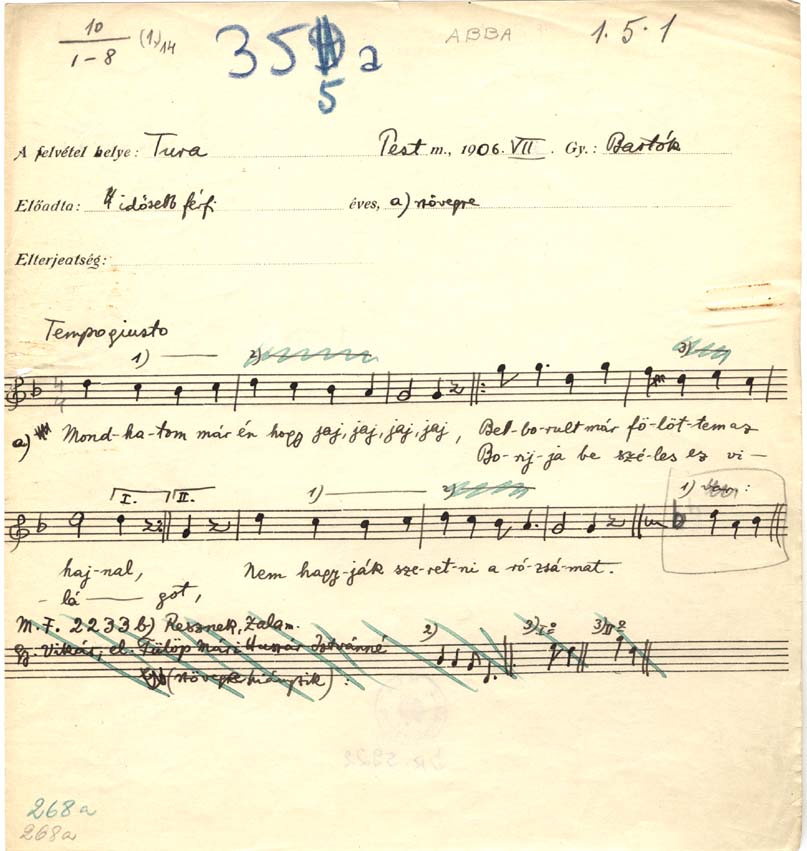 10
1-8
(1)14
35 a
5
ABBA
1. 5. 1
A felvétel helye: Tura Pest m., 1906. VII. Gy.: Bartók
Előadta: 4 idősebb férfi éves, a) szövegre
Elterjedtség:
Tempo giusto
1) 2) 3)
a) Mond-ha-tom már én hogy jaj, jaj, jaj, jaj, Bel-bo-rult már fö-löt-tem az
Bo-rij-ja be szé-les ez vi-
I. II. 1) 2) 1)
haj-nal, Nem hagy-ják sze-ret-ni a ró-zsá-mat.
-lá- got,
M.F. 2233b) Resznek, Zala m.
Gy. Vikár, el. Fülöp Mári Huszár Istvánné
2) 3) I=o 3) II=o
(szövegre hiányzik):
268a
268a